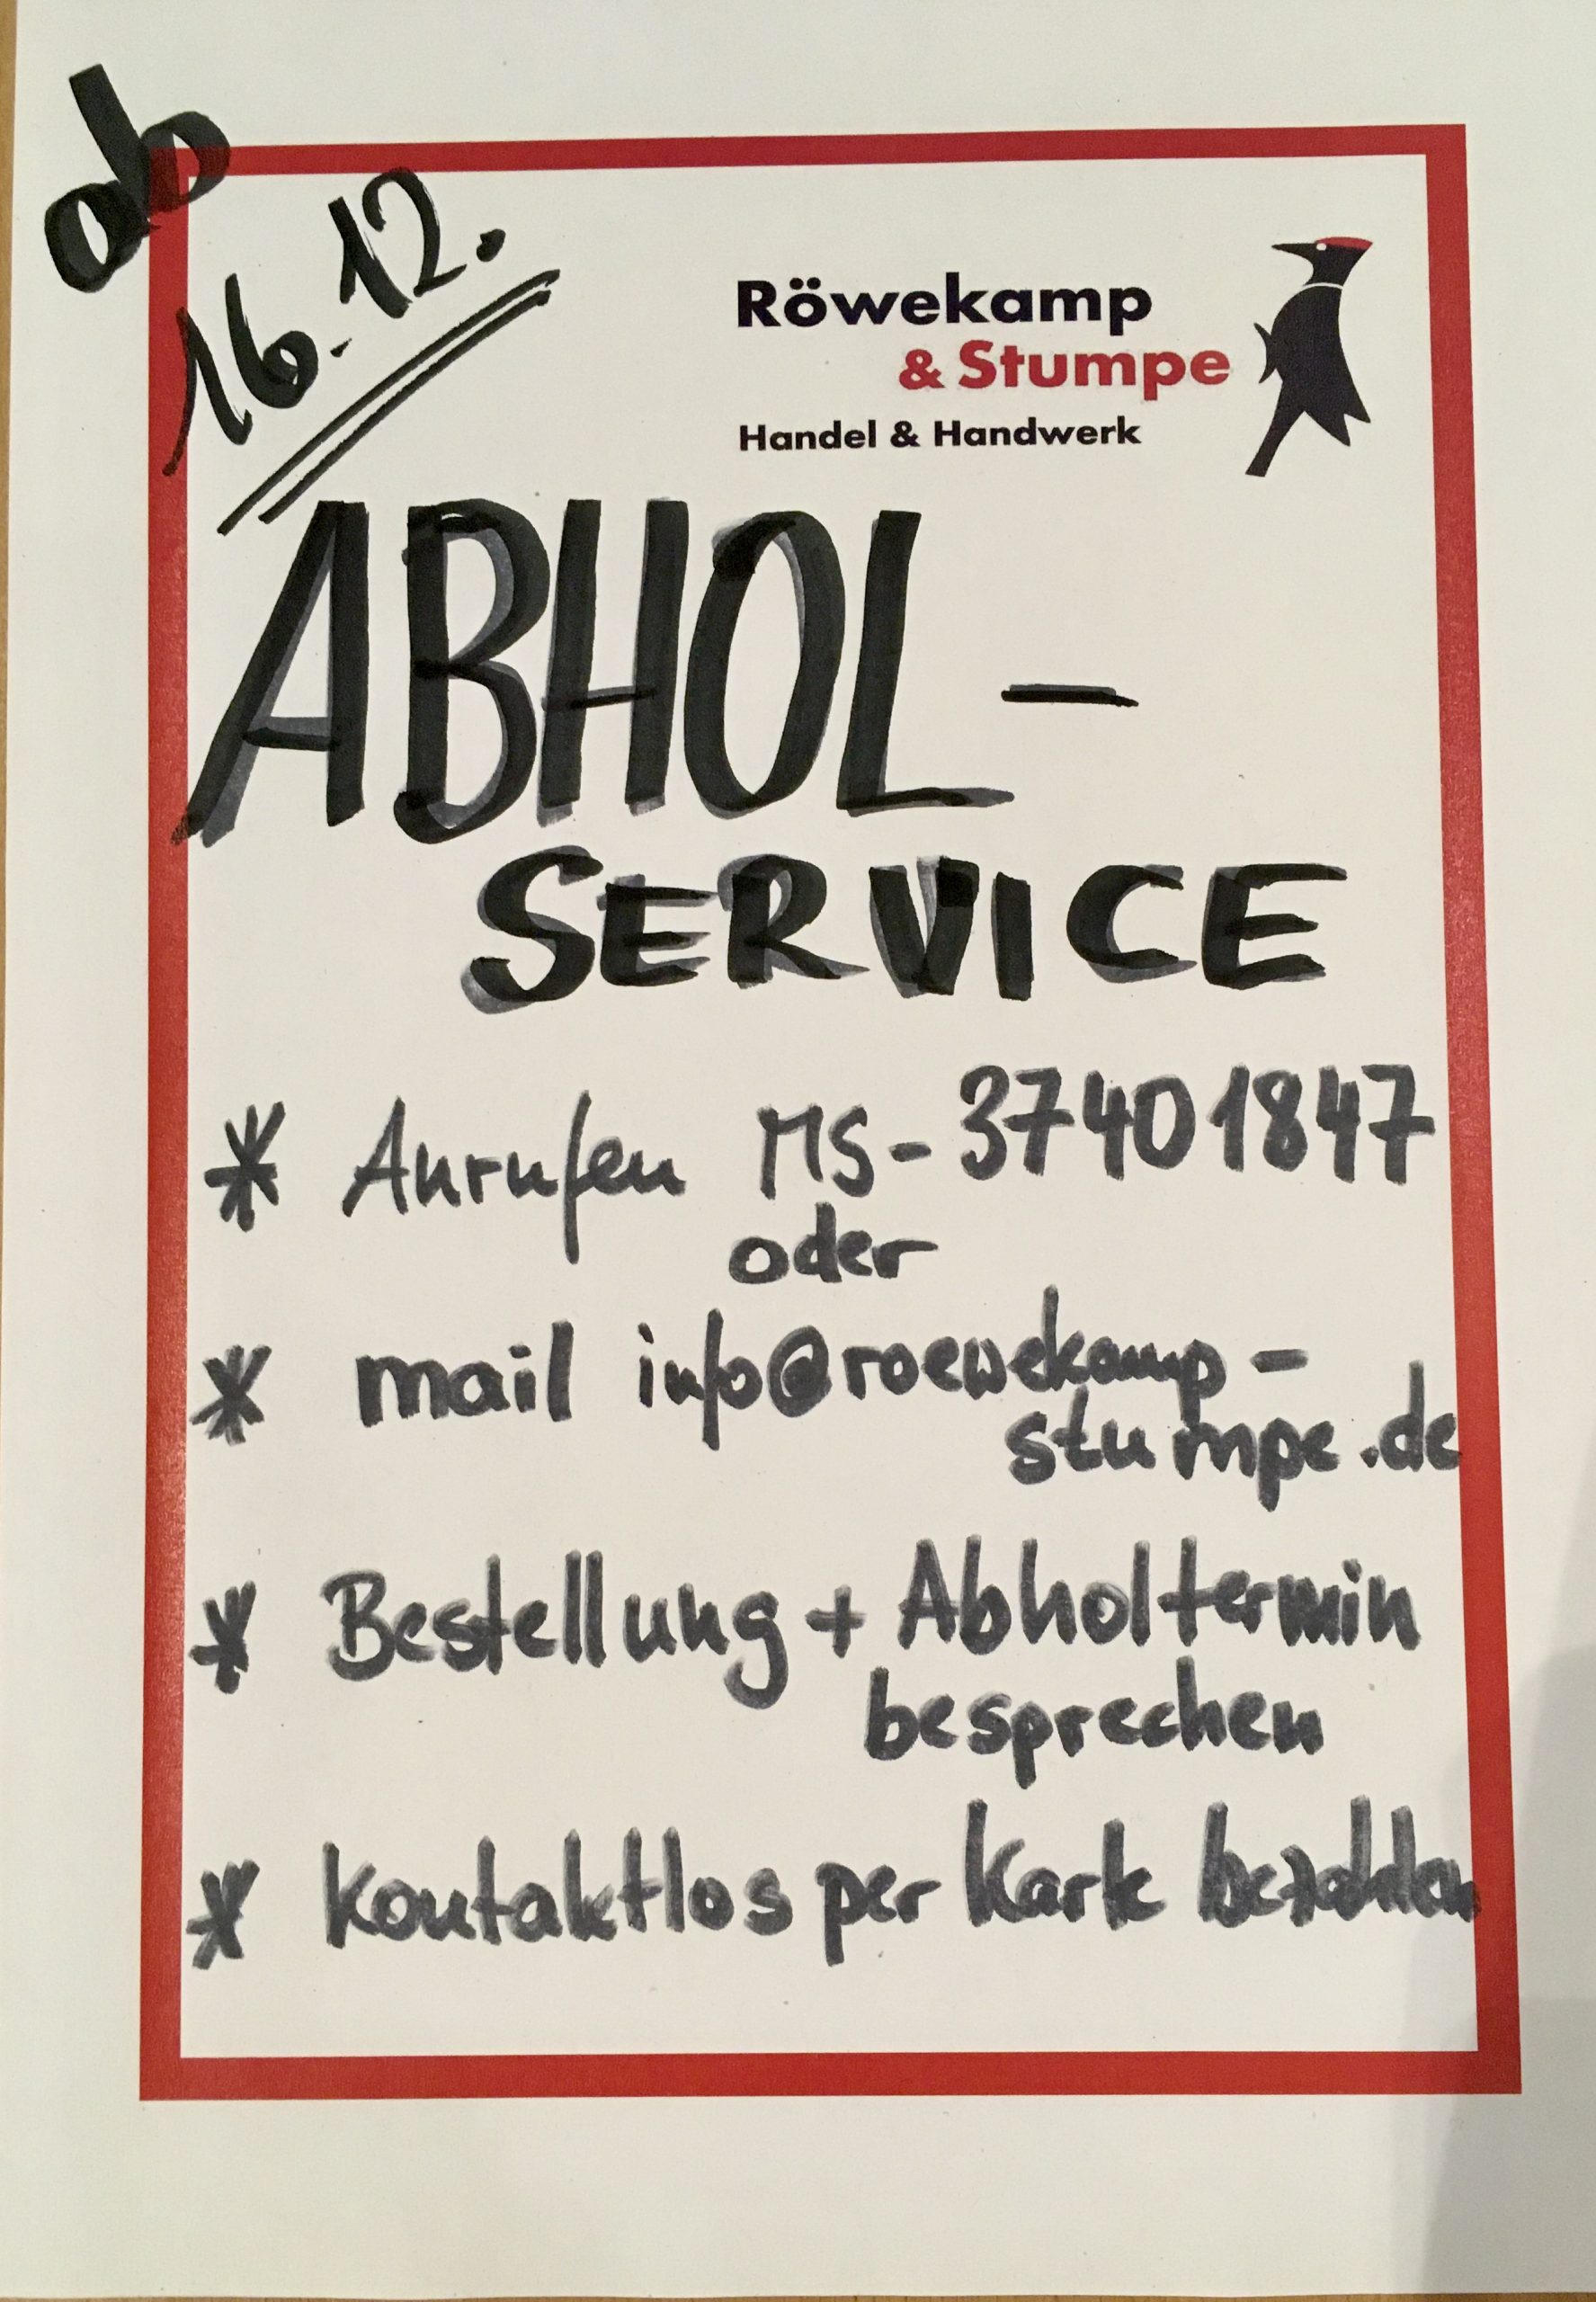 ab
16.12.
Röwekamp
& Stumpe
Handel & Handwerk
ABHOL-
SERVICE
* Anrufen MS-37401847
oder
* mail info@roewekamp-
stumpe.de
* Bestellung + Abholtermin
besprechen
* Kontaktlos per Karte bezahlen